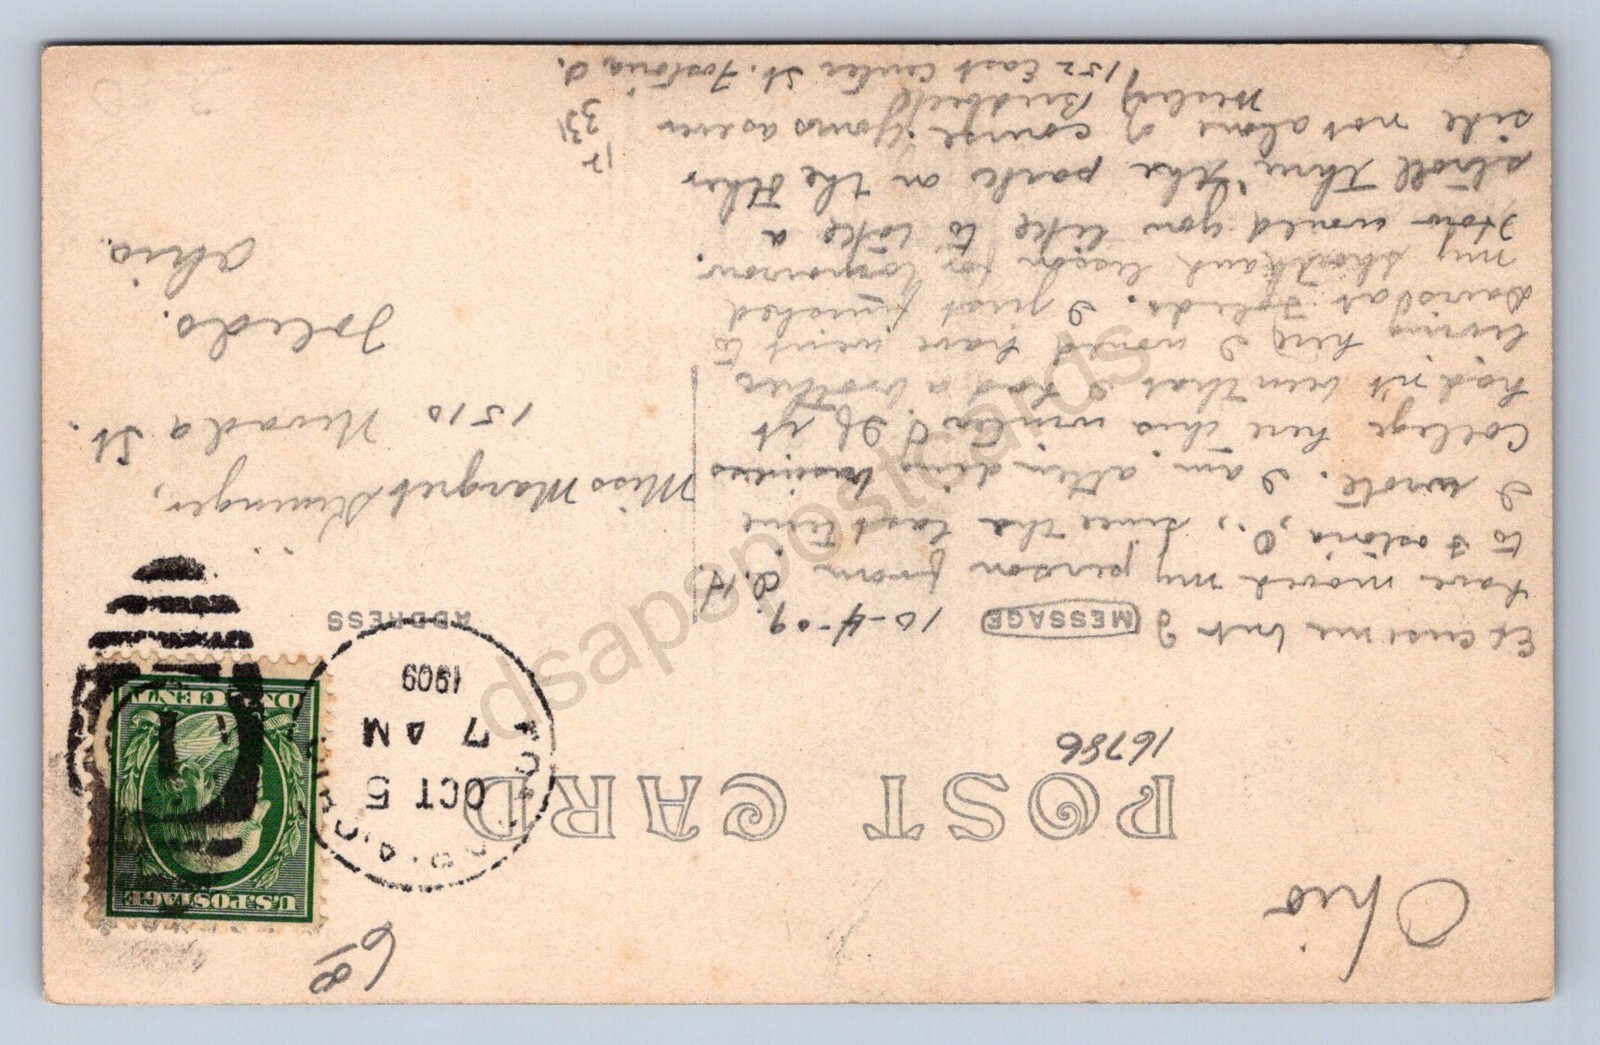 Ohio
68
POST CARD
16786
U.S. POSTAGE
ONE CENT
OCT 5
7 AM
1909
MESSAGE
ADDRESS
10-4-09.
O.H.
Excuse me but I
have moved my person from
to Fostoria, O., since the last time
I wrote. I am attending business
College here this winter. If it
hadn't been that I had a brother
living here I would have went to
Davis at Toledo. I just finished
my shorthand lesson for tomorrow.
How would you like to take a
stroll thru' the park on the other
side not alone of course. Yours as ever
Wesley
152 East Center St. Fostoria, O.
Miss Margret
1510 Nevada St.
Toledo.
Ohio.
331
dsapspostcards